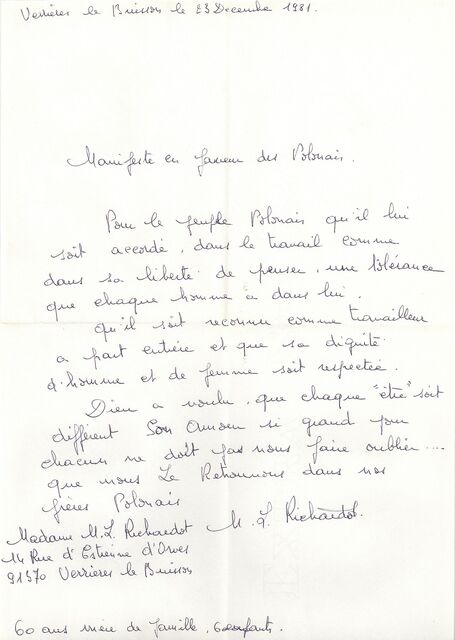 Verrières le Buisson le 23 Decembre 1981.
Manifeste en faveur des Polonais.
Pour le peuple Polonais qu'il lui
soit accordé, dans le travail comme
dans sa liberté de penser, une tolérance
que chaque homme a dans lui.
qu'il soit reconnu comme travailleur
a part entière et que sa dignité
d'homme et de femme soit respectée.
Dieu a voulu, que chaque "être" soit
différent Son Amour si grand pour
chacun ne doit pas nous faire oublier....
que nous Le Retrouvons dans nos
frères Polonais
M. L. Richardot.
Madame M. L. Richardot
14 Rue d'Estienne d'Orves
91370 Verrières le Buisson
60 ans mère de famille, 6 enfants.